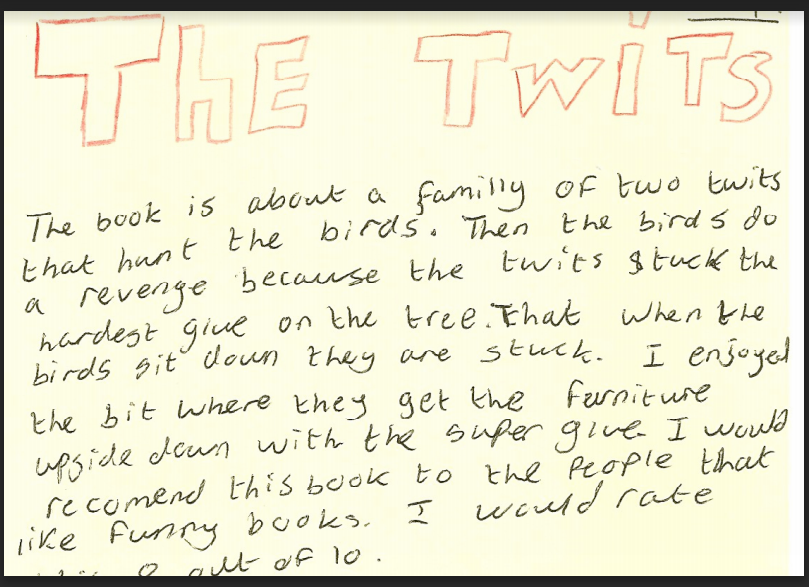 THE TWiTS
The book is about a familly of two twits
that hunt the birds. Then the birds do
a revenge because the twits stuck the
hardest glue on the tree. That when the
birds sit down they are stuck. I enjoyed
the bit where they get the furniture
upside down with the super glue. I would
recomend this book to the people that
like funny books. I would rate
out of 10.